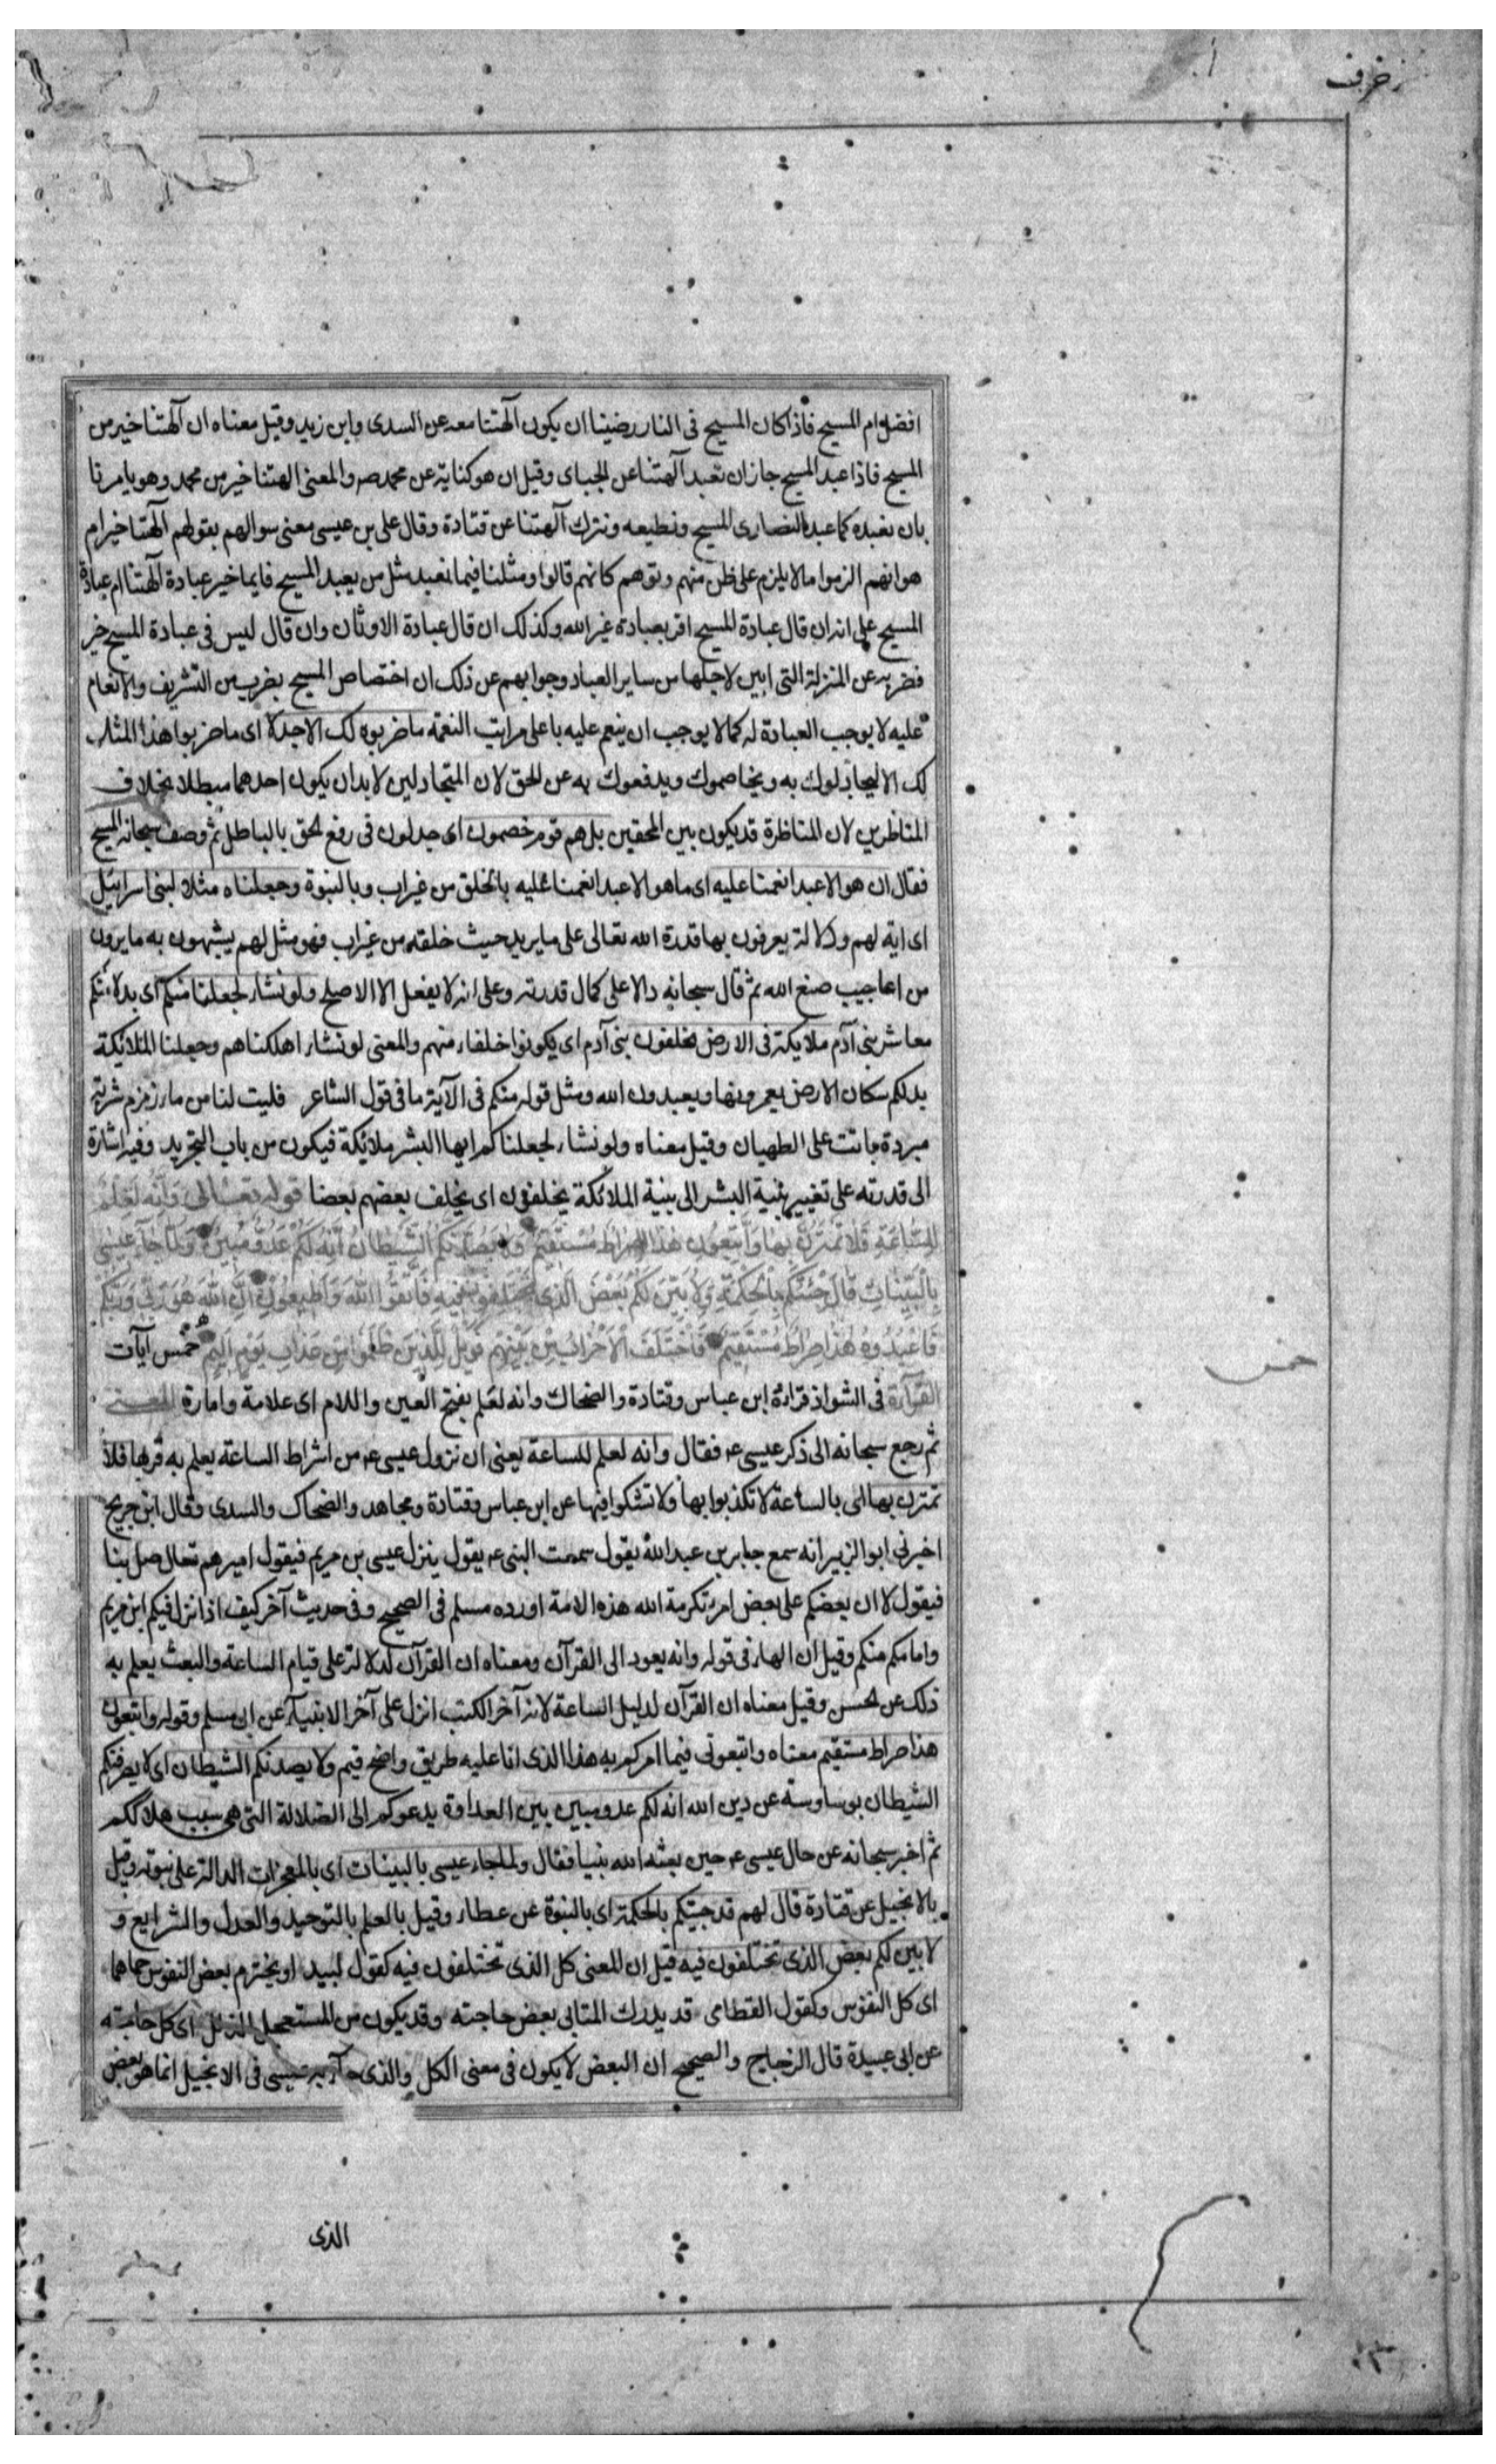 زخرف
افضل ام المسيح فاذا كان المسيح فى النار رضينا ان يكون آلهتنا معه عن السدى وابن زيد وقيل معناه ان آلهتنا خير من
المسيح فاذا عبد المسيح جاز ان تعبد آلهتنا عن الجباى وقيل ان هو كناية عن محمد صه والمعنى الهتنا خير من محمد وهو يامرنا
بان نعبده كما عبد النصارى المسيح ونطيعه ونترك آلهتنا عن قتادة وقال على بن عيسى معنى سوالهم بقولهم آلهتنا خير ام
هو انهم الزموا ما لا يلزم على ظن منهم وتوهم كانهم قالوا ومثلنا فيما نعبد مثل من يعبد المسيح فايما خير عبادة آلهتنا ام عبادة
المسيح على انه ان قال عبادة المسيح اقر بعبادة غير الله وكذلك ان قال عبادة الاوثان وان قال ليس فى عبادة المسيح خير
قصر به عن المنزلة التى ابين لاجلها من ساير العباد وجوابهم عن ذلك ان اختصاص المسيح بضرب من التشريف والانعام
عليه لا يوجب العبادة له كما لا يوجب ان ينعم عليه باعلى مراتب النعمة ما ضربوه لك الا جدلا اى ما ضربوا هذا المثل
لك الا ليجادلوك به ويخاصموك ويدفعوك به عن الحق لان المتجادلين لا بد ان يكون احدهما مبطلا بخلاف
المتناظرين لان المناظرة قد يكون بين المحقين بل هم قوم خصمون اى جدلون فى رفع الحق بالباطل ثم وصف سبحانه المسيح
فقال ان هو الا عبد انعمنا عليه اى ما هو الا عبد انعمنا عليه بالخلق من غير اب وبالنبوة وجعلناه مثلا لبنى اسرائيل
اى اية لهم ودلالة يعرفون بها قدرة الله تعالى على ما يريد حيث خلقه من غير اب فهو مثل لهم يشبهون به ما يرون
من اعاجيب صنع الله ثم قال سبحانه دالا على كمال قدرته وعلى انه لا يفعل الا الاصلح ولو نشاء لجعلنا منكم اى بدلا منكم
معاشر بنى آدم ملايكة فى الارض يخلفون بنى آدم اى يكونوا خلفاء منهم والمعنى لو نشاء اهلكناهم وجعلنا الملائكة
بدلكم سكان الارض يعمرونها ويعبدون الله ومثل قوله منكم فى الآية ما فى قول الشاعر فليت لنا من ماء زمزم شربة
مبردة باتت على الطهيان وقيل معناه ولو نشاء لجعلناكم ايها البشر ملائكة فيكون من باب التجريد وفيه اشارة
الى قدرته على تغيير بنية البشر الى بنية الملائكة يخلفون اى يخلف بعضهم بعضا قوله تعالى وَانه لَعلم
لِلسَّاعَةِ فَلَا تَمْتَرُنَّ بِهَا وَاتَّبِعُونِ هٰذَا صِرَاطٌ مُسْتَقِيمٌ وَلَا يَصُدَّنَّكُمُ الشَّيْطَانُ اِنَّهُ لَكُمْ عَدُوٌّ مُبِينٌ وَلَمَّا جَآءَ عِيسٰى
بِالْبَيِّنَاتِ قَالَ قَدْ جِئْتُكُمْ بِالْحِكْمَةِ وَلِاُبَيِّنَ لَكُمْ بَعْضَ الَّذِى تَخْتَلِفُونَ فِيهِ فَاتَّقُوا اللهَ وَاَطِيعُونِ اِنَّ اللهَ هُوَ رَبِّى وَرَبُّكُمْ
فَاعْبُدُوهُ هٰذَا صِرَاطٌ مُسْتَقِيمٌ فَاخْتَلَفَ الْاَحْزَابُ مِنْ بَيْنِهِمْ فَوَيْلٌ لِلَّذِينَ ظَلَمُوا مِنْ عَذَابِ يَوْمٍ اَلِيمٍ خمس آيات
خمس
القرآءة فى الشواذ قراءة ابن عباس وقتادة والضحاك وانه لعَلَم بفتح العين واللام اى علامة وامارة المعنى
ثم رجع سبحانه الى ذكر عيسى عه فقال وانه لعلم للساعة يعنى ان نزول عيسى عه من اشراط الساعة يعلم به قربها فلا
تمترن بها اى بالساعة لا تكذبوا بها ولا تشكوا فيها عن ابن عباس وقتادة ومجاهد والضحاك والسدى وقال ابن جريح
اخبرنى ابو الزبير انه سمع جابر بن عبد الله يقول سمعت النبى عه يقول ينزل عيسى بن مريم فيقول اميرهم تعال صل بنا
فيقول لا ان بعضكم على بعض امراء تكرمة الله هذه الامة اورده مسلم فى الصحيح وفى حديث آخر كيف اذا نزل فيكم ابن مريم
وامامكم منكم وقيل ان الهاء فى قوله وانه يعود الى القرآن ومعناه ان القرآن لدلالة على قيام الساعة والبعث يعلم به
ذلك عن الحسن وقيل معناه ان القرآن لدليل الساعة لانه آخر الكتب انزل على آخر الانبيآء عن ابى مسلم وقوله واتبعون
هذا صراط مستقيم معناه واتبعونى فيما امركم به هذا الذى انا عليه طريق واضح قيم ولا يصدنكم الشيطان اى لا يصرفنكم
الشيطان بوساوسه عن دين الله انه لكم عدو مبين بين العداوة يدعوكم الى الضلالة التى هى سبب هلاككم
ثم اخبر سبحانه عن حال عيسى عه حين بعثه الله نبيا فقال ولما جاء عيسى بالبينات اى بالمعجزات الدالة على نبوته وقيل
بالانجيل عن قتادة قال لهم قد جيتكم بالحكمة اى بالنبوة عن عطاء وقيل بالعلم بالتوحيد والعدل والشرايع و
لابين لكم بعض الذى تختلفون فيه قيل ان المعنى كل الذى تختلفون فيه كقول لبيد او يخترم بعض النفوس حمامها
اى كل النفوس وكقول القطامى قد يدرك المتانى بعض حاجته وقد يكون من المستعجل الزلل اى كل حاجته
عن ابى عبيدة قال الزجاج والصحيح ان البعض لا يكون فى معنى الكل والذى جآء به عيسى فى الانجيل انما هو بعض
الذى